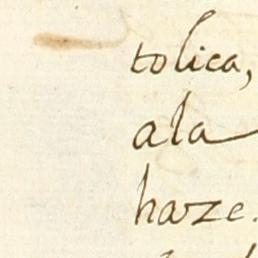 tolica,
ala
haze.